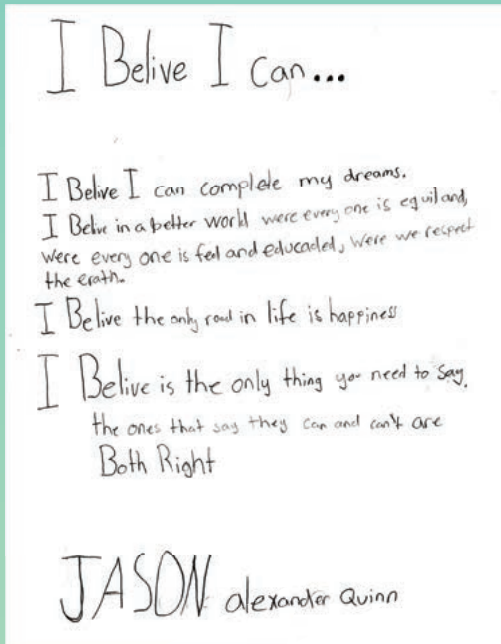 I Belive I Can...
I Belive I can complete my dreams.
I Belive in a better world were every one is equil and,
were every one is fed and educaded, were we respect
the erath.
I Belive the only road in life is happiness
I Belive is the only thing you need to say.
the ones that say they can and can't are
Both Right
JASON alexander Quinn